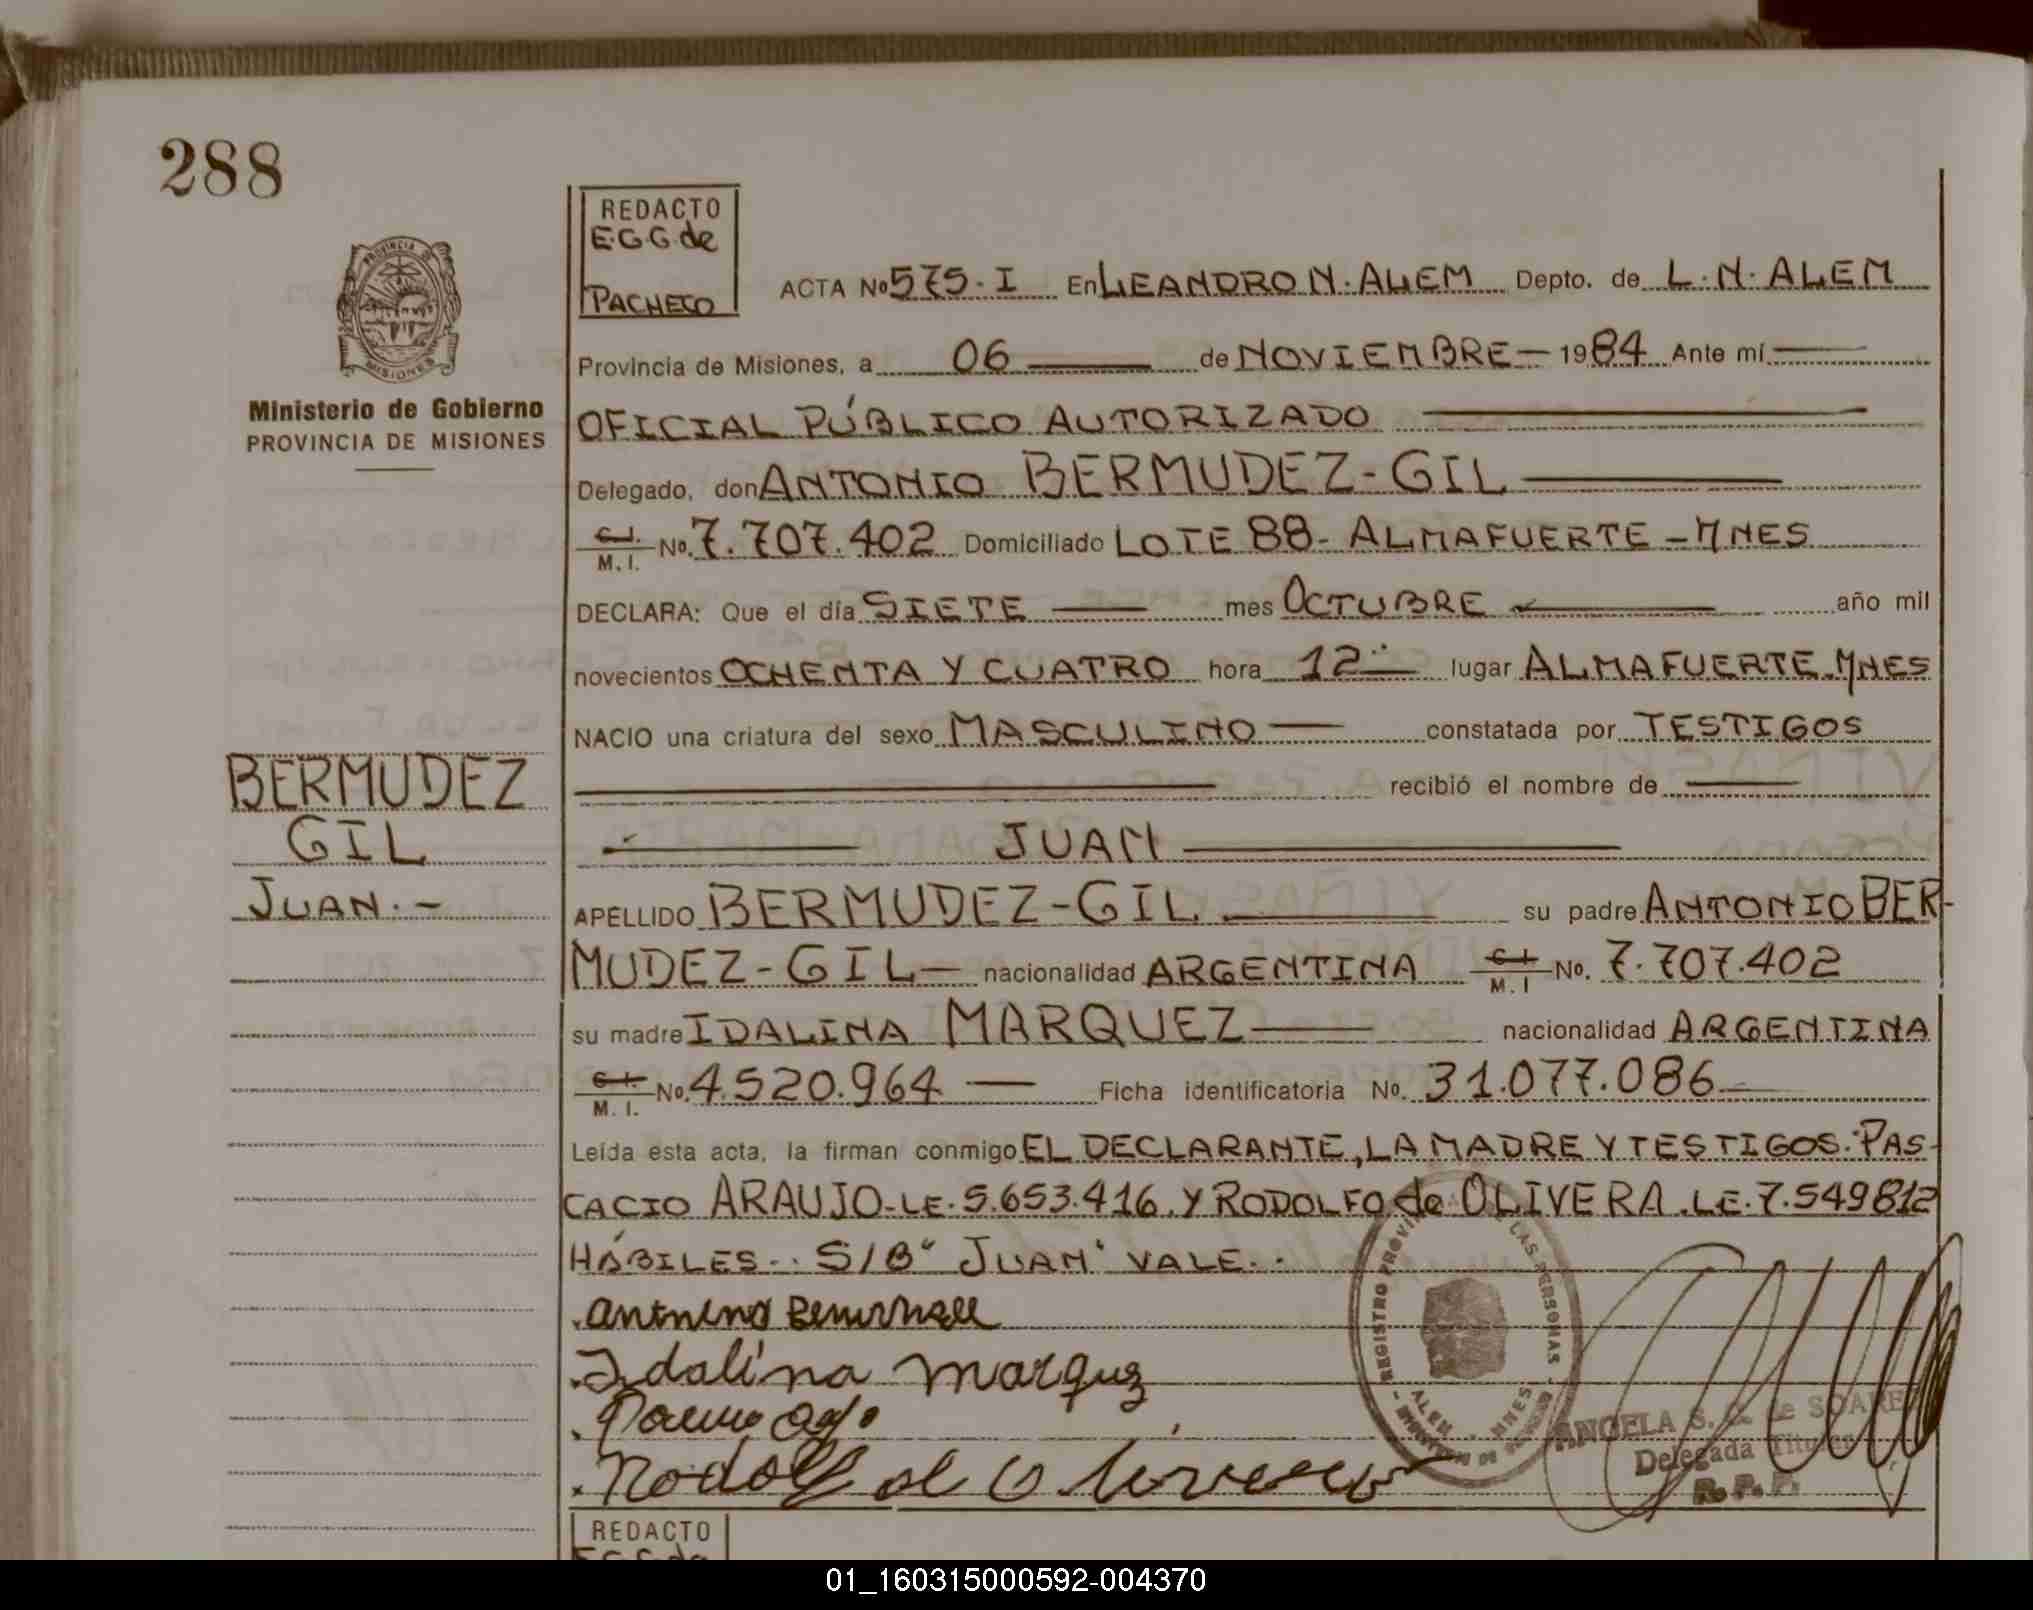 288
REDACTO
E.G.G. de
PACHECO
PROVINCIA DE
MISIONES
Ministerio de Gobierno
PROVINCIA DE MISIONES
ACTA No 575.I En LEANDRO N. ALEM Depto. de L. N. ALEM
Provincia de Misiones, a 06 de NOVIEMBRE 1984 Ante mí
OFICIAL PÚBLICO AUTORIZADO
Delegado, don ANTONIO BERMUDEZ-GIL
C.I. M.I. No. 7.707.402 Domiciliado LOTE 88- ALMAFUERTE - MNES
DECLARA: Que el día SIETE mes OCTUBRE año mil
novecientos OCHENTA Y CUATRO hora 12 lugar ALMAFUERTE. MNES
NACIO una criatura del sexo MASCULINO constatada por TESTIGOS
recibió el nombre de
JUAN
BERMUDEZ
GIL
JUAN.-
APELLIDO BERMUDEZ-GIL su padre ANTONIO BER-
MUDEZ-GIL nacionalidad ARGENTINA C.I. M.I No. 7.707.402
su madre IDALINA MARQUEZ nacionalidad ARGENTINA
C.I. M.I. No. 4.520.964 Ficha identificatoria No. 31.077.086
Leída esta acta, la firman conmigo EL DECLARANTE, LA MADRE Y TESTIGOS: PAS-
CACIO ARAUJO-LE. 5.653.416. Y RODOLFO de OLIVERA. LE. 7.549812
HÁBILES.. S/B "JUAN" VALE..
Idalina Marquez
Rodolfo de Olivera
REGISTRO PROVINCIAL DE LAS PERSONAS
ALEM - MNES
ANGELA S. G. de SOAREZ
Delegada Titular
R.P.P.
REDACTO
E.G.G. de
01_160315000592-004370